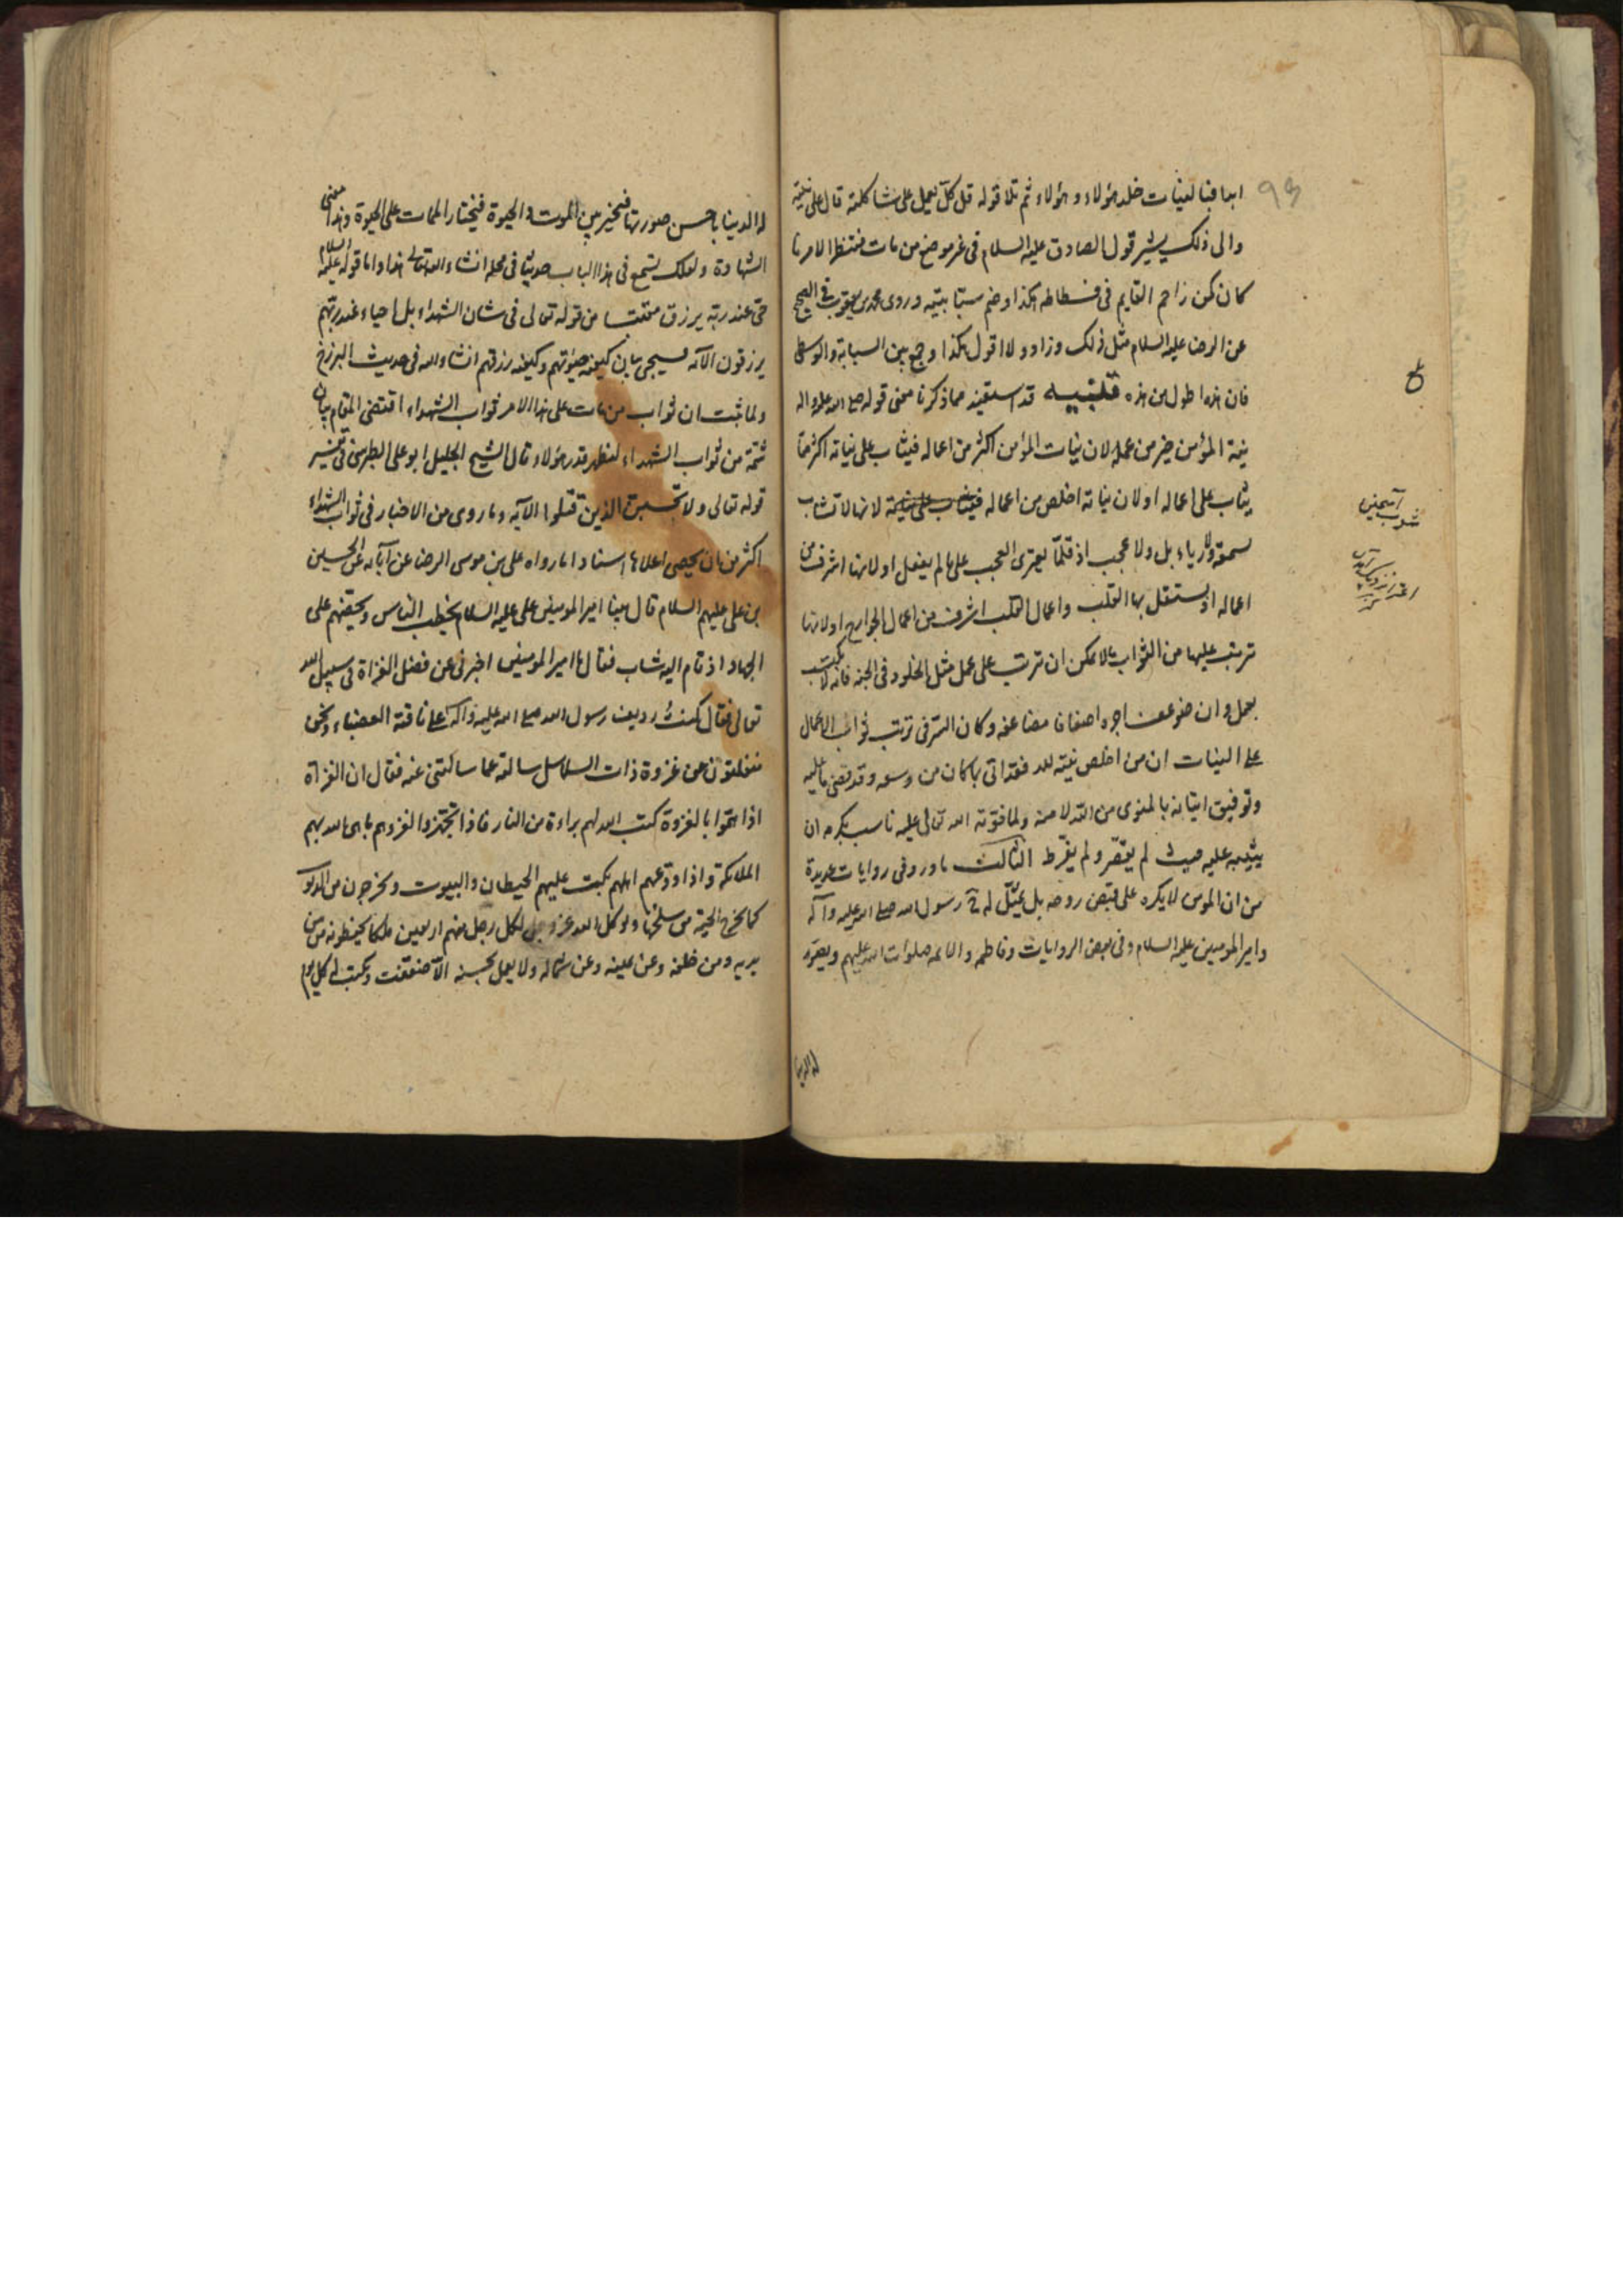 ابدا فبالنيات خلد هؤلاء وهؤلاء ثم تلا قوله قل كل يعمل على شاكلته قال على نيته
والى ذلك يشير قول الصادق عليه السلام فى غير موضع من مات منتظرا لامرنا
كان كمن زاحم القايم فى فسطاطه هكذا وضم سبابتيه وروى محمد بن يعقوب فى الصحيح
عن الرضا عليه السلام مثل ذلك وزاد ولا اقول هكذا وجمع بين السبابة والوسطى
فان هذه اطول من هذه تنبيه قد استفيد مما ذكرنا معنى قوله صلى الله عليه واله
نية المؤمن خير من عمله لان نيات المؤمن اكثر من اعماله فيثاب على نياته اكثر مما
يثاب على اعماله او لان نياته اخلص من اعماله لانها لا تشاب
بسمعة ولا رياء بل ولا عجب اذ قلما يعترى العجب على ما لم يفعل او لانها اشرف من
اعماله اذ يستقل بها القلب واعمال القلب اشرف من اعمال الجوارح او لانها
ترتب عليها من الثواب ما لا يمكن ان ترتب على عمل مثل الخلود فى الجنة فانه لا يكتسب
بعمل وان ضوعف اجره اضعافا مضاعفه وكان السر فى ترتب ثواب الاعمال
على النيات ان من اخلص نيته لله فقد اتى بما كان من وسعه وقد قضى ما عليه
وتوفيق اتيانه بالمنوى من الله لا منه ولما فوته الله تعالى عليه ناسب بكرمه ان
يثيبه عليه حيث لم يقصر ولم يفرط الثالث ما ورد فى روايات عديدة
من ان المومن لا يكره على قبض روحه بل يمثل له رسول الله صلى الله عليه وآله
وامير المومنين عليه السلام وفى بعض الروايات وفاطمه والائمه صلوات الله عليهم ويصور
له الدنيا
له الدنيا باحسن صورتها فيخير بين الموت والحيوة فيختار الممات على الحيوة وهذا معنى
الشهادة ولعلك تسمع فى هذا الباب حديثا فى محله انشاء الله تعالى هذا واما قوله عليه السلام
حى عند ربه يرزق مقتبسا من قوله تعالى فى شان الشهداء بل احياء عند ربهم
يرزقون الآيه سيجى بيان كيفيه حيوتهم وكيفيه رزقهم انشاء الله فى حديث البرزخ
ولما ثبت ان ثواب من مات على هذا الامر ثواب الشهداء اقتضى المقام بيان
شمة من ثواب الشهداء ليظهر قدر هؤلاء قال الشيخ الجليل ابو على الطبرسى فى تفسير
قوله تعالى ولا تحسبن الذين قتلوا الآيه وما روى من الاخبار فى ثواب الشهداء
اكثر من ان يحصى اعلاها اسنادا ما رواه على بن موسى الرضا عن آبائه عن الحسين
بن على عليهم السلام قال بينا امير المومنين على عليه السلام يخطب الناس ويحضهم على
الجهاد اذ قام اليه شاب فقال يا امير المومنين اخبرنى عن فضل الغزاة فى سبيل الله
تعالى فقال كنت رديف رسول الله صلى الله عليه وآله على ناقته العضباء ونحن
منقلبون عن غزوة ذات السلاسل سالته عما سالتنى عنه فقال ان الغزاة
اذا هموا بالغزوة كتب الله لهم براءة من النار فاذا تجهزوا لغزوهم باهى الله بهم
الملائكة واذا ودعهم اهلهم بكت عليهم الحيطان والبيوت ويخرجون من الذنوب
كما تخرج الحية من سلخها ويوكل الله عز وجل لكل رجل منهم اربعين ملكا يحفظونه من بين
يديه ومن خلفه وعن يمينه وعن شماله ولا يعمل بحسنه الا ضعفت ويكتب له كل يوم